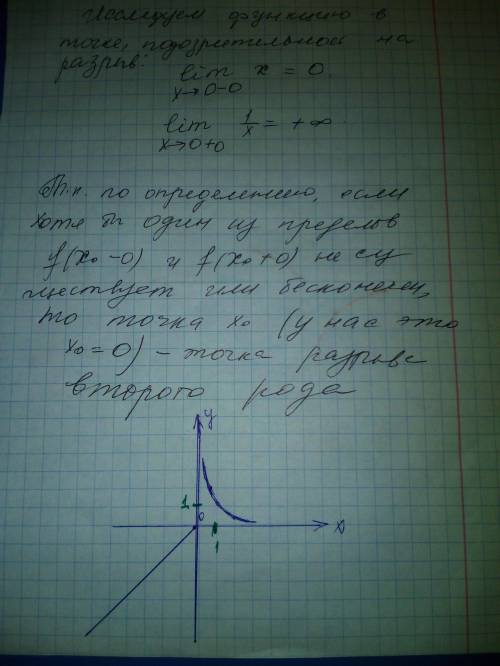 Исследуем функцию в
точке, подозрительной на
разрыв:
lim x = 0.
x→0-0
lim 1/x = +∞.
x→0+0
Т.к. по определению, если
хотя бы один из пределов
f(x₀-0) и f(x₀+0) не су
ществует или бесконечен,
то точка x₀ (у нас это
x₀=0) - точка разрыва
второго рода
y
1
0
x
1